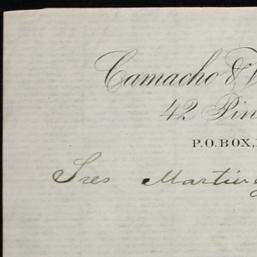 Camacho &
42 Pin
P.O.BOX,
Sres Martin